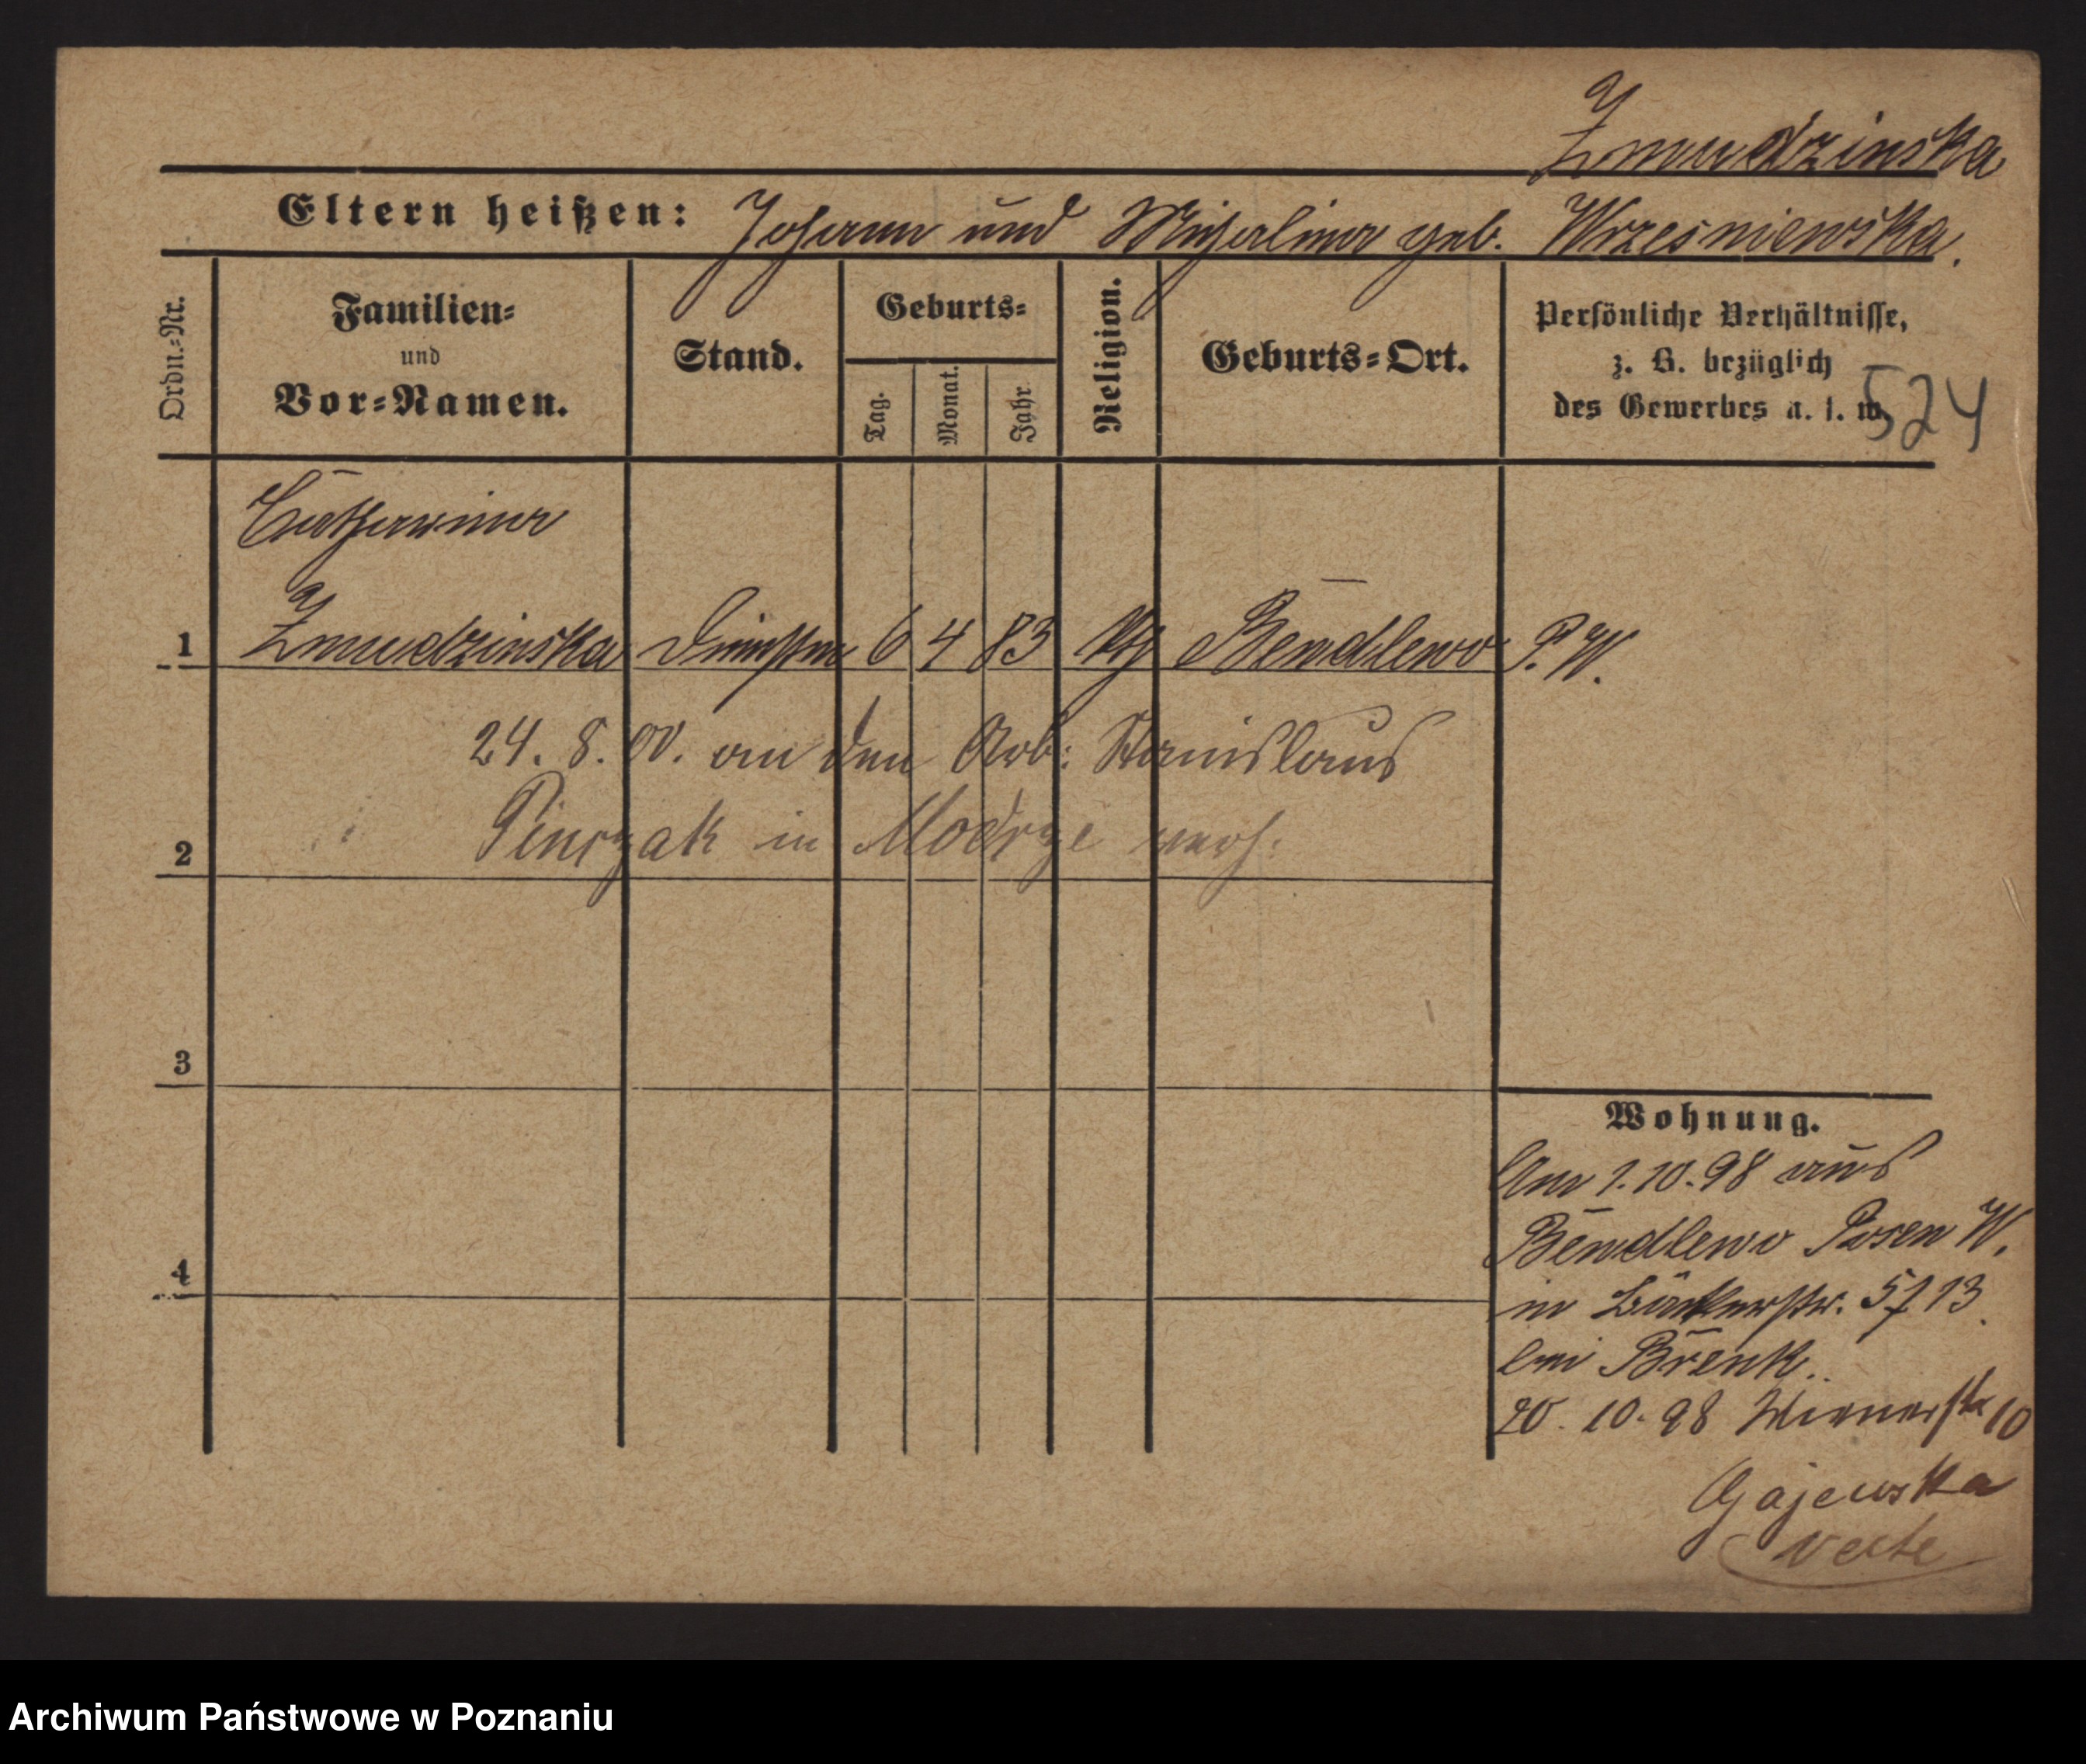 Zmudzinska
Eltern heißen: Johann und Michalina geb. Wrzesniewska.
Ordn.-Nr.
Familien-
und
Vor-Namen.
Stand.
Geburts-
Tag.
Monat.
Jahr
Religion.
Geburts-Ort.
Persönliche Verhältnisse,
z. B. bezüglich
des Gewerbes u. s. w.
524
Catharina
1 Zmudzinska 6 4 83 Bendlewo P. W.
24. 8. 00. an den Arb: Stanislaus
2 Pinczak in Modrze verh.
3
4
Wohnung.
Am 1.10.98 aus
Bendlewo Posen W.
in Bäckerstr. 5 13
bei Brenk.
20. 10. 98 Wienerstr 10
Gajewska
verte
Archiwum Państwowe w Poznaniu